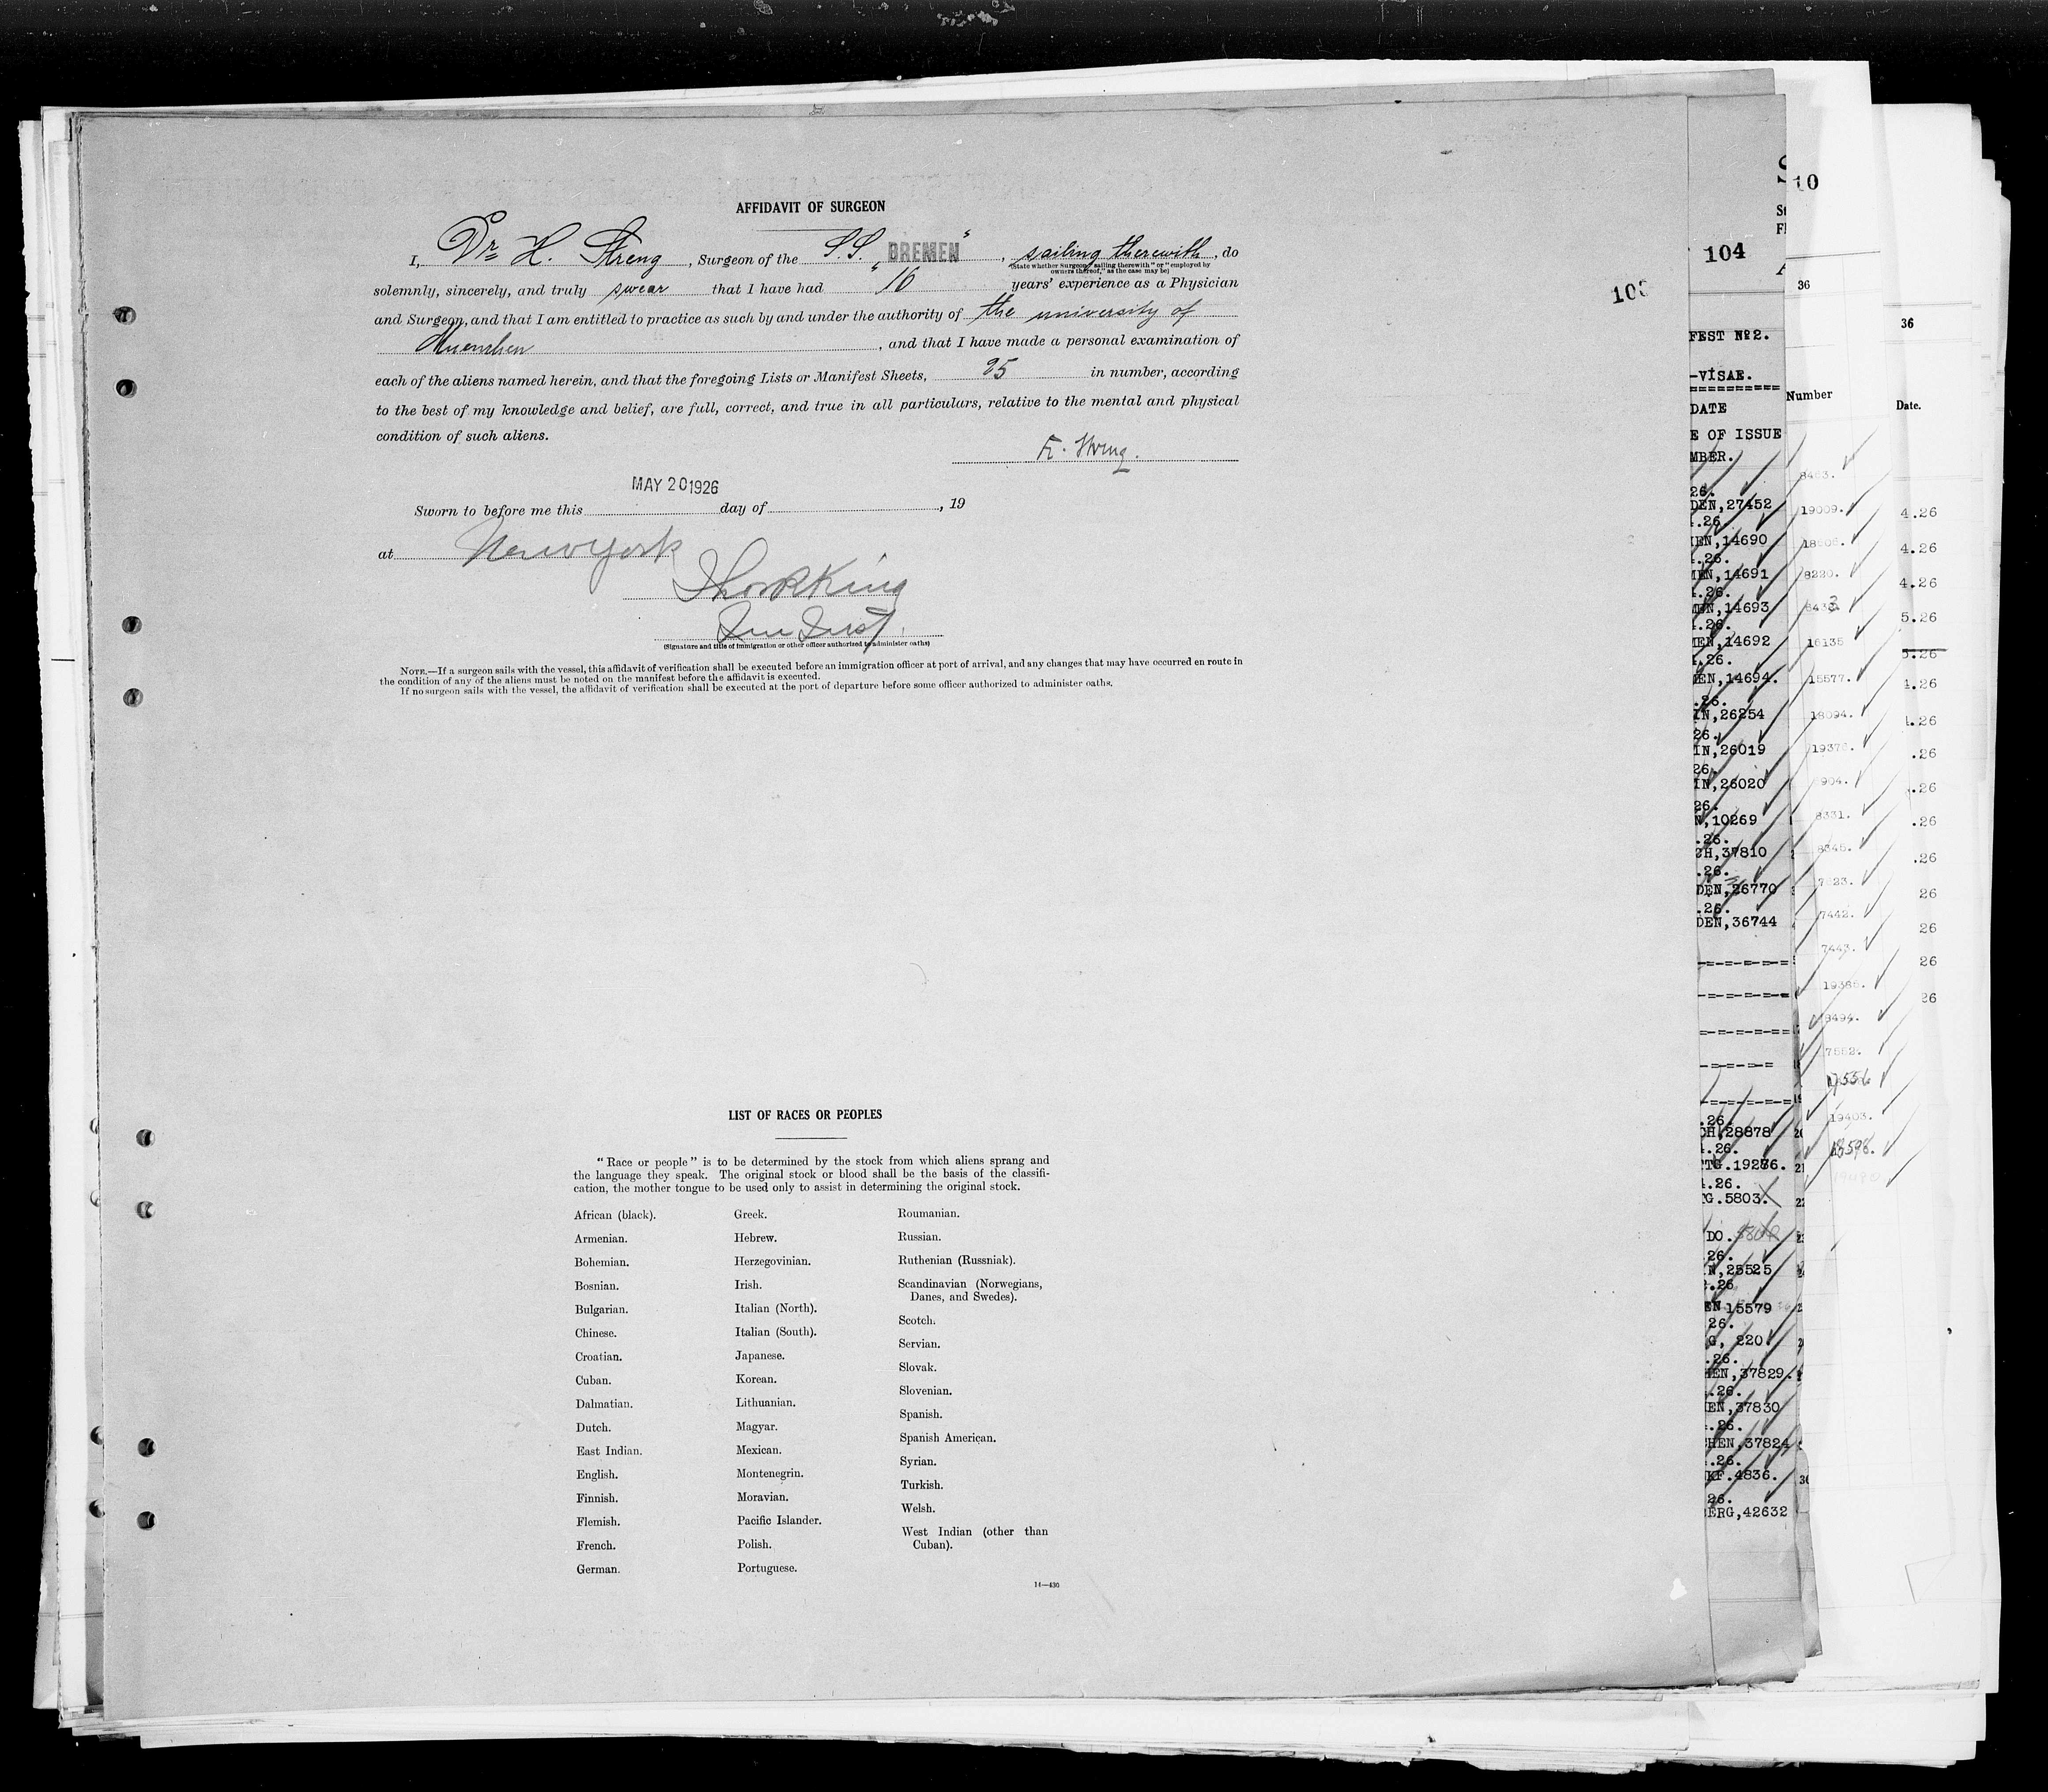 AFFIDAVIT OF SURGEON
I, Dr. H. Streng, Surgeon of the S.S. "BREMEN", sailing therewith, do
(State whether Surgeon "sailing therewith" or "employed by owners thereof," as the case may be)
solemnly, sincerely, and truly swear that I have had 16 years' experience as a Physician
and Surgeon, and that I am entitled to practice as such by and under the authority of the university of
Muenchen, and that I have made a personal examination of
each of the aliens named herein, and that the foregoing Lists or Manifest Sheets, 25 in number, according
to the best of my knowledge and belief, are full, correct, and true in all particulars, relative to the mental and physical
condition of such aliens.
Streng.
Sworn to before me this MAY 20 1926 day of , 19
at New York
(Signature and title of immigration or other officer authorized to administer oaths)
NOTE.—If a surgeon sails with the vessel, this affidavit of verification shall be executed before an immigration officer at port of arrival, and any changes that may have occurred en route in
the condition of any of the aliens must be noted on the manifest before the affidavit is executed.
If no surgeon sails with the vessel, the affidavit of verification shall be executed at the port of departure before some officer authorized to administer oaths.
LIST OF RACES OR PEOPLES
"Race or people" is to be determined by the stock from which aliens sprang and
the language they speak. The original stock or blood shall be the basis of the classifi-
cation, the mother tongue to be used only to assist in determining the original stock.
African (black).
Armenian.
Bohemian.
Bosnian.
Bulgarian.
Chinese.
Croatian.
Cuban.
Dalmatian.
Dutch.
East Indian.
English.
Finnish.
Flemish.
French.
German.
Greek.
Hebrew.
Herzegovinian.
Irish.
Italian (North).
Italian (South).
Japanese.
Korean.
Lithuanian.
Magyar.
Mexican.
Montenegrin.
Moravian.
Pacific Islander.
Polish.
Portuguese.
Roumanian.
Russian.
Ruthenian (Russniak).
Scandinavian (Norwegians,
Danes, and Swedes).
Scotch.
Servian.
Slovak.
Slovenian.
Spanish.
Spanish American.
Syrian.
Turkish.
Welsh.
West Indian (other than
Cuban).
14—430
104
FEST No2.
-VISAE.
DATE
E OF ISSUE
MBER.
26.
DEN,27452
.26.
EN,14690
.26.
EN,14691
.26.
EN,14693
.26.
EN,14692
.26.
EN,14694.
.26.
IN,26254
26.
IN,26019
26.
IN,26020
26.
N,10269
.26.
CH,37810
.26.
DEN,26770
.26.
DEN,36744
.26.
CH,28878
.26.
TG.19286.
.26.
G.5803.
DO.
.26.
N,25525
.26
EN 15579
26.
G, 220.
.26.
HEN,37829.
.26.
EN,37830
.26.
HEN,37824
.26.
KF.4836.
26.
ERG,42632
10
36
Number
8463.
19009.
8220.
16135
15577.
18094.
19376.
904.
8331.
8345.
7623.
7442.
7443.
19386.
8494.
7552.
7556
19403.
18598.
36
Date.
4.26
4.26
4.26
5.26
5.26
4.26
4.26
.26
.26
.26
.26
26
26
26
26